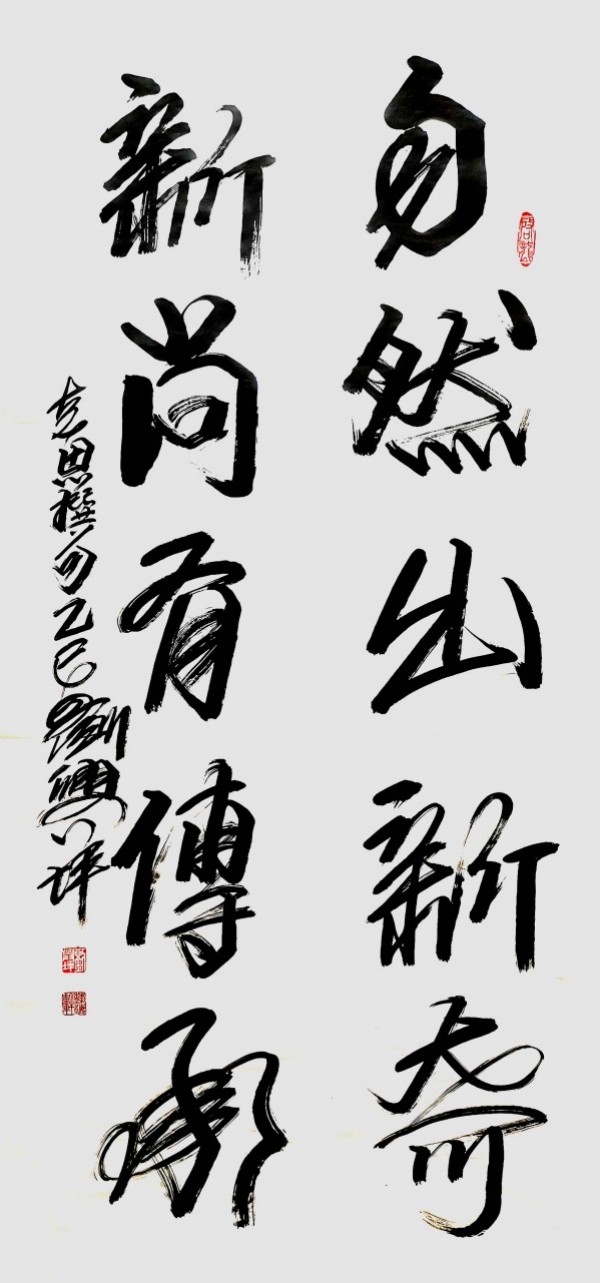 自然出新奇
新尚有傳承
志思撰句乙巳劉興祥